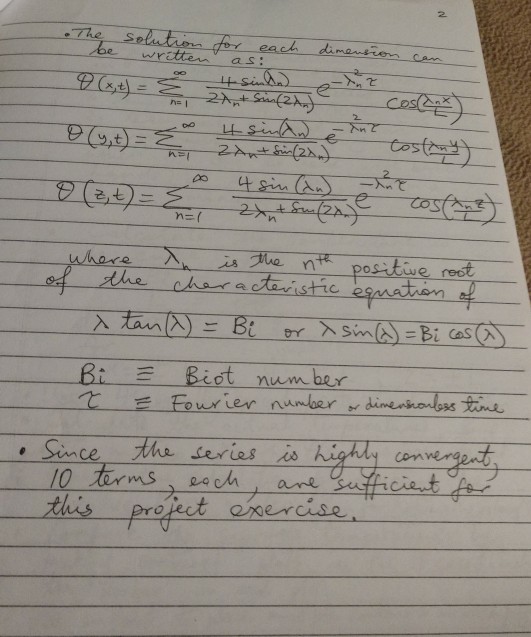 2
• The solution for each dimension can
be written as:
Θ(x,t) = ∞Σn=1 4 sin(λn) / 2λn + sin(2λn) e^-λn²τ cos(λnx/L)
Θ(y,t) = ∞Σn=1 4 sin(λn) / 2λn + sin(2λn) e^-λn²τ cos(λny/L)
Θ(z,t) = ∞Σn=1 4 sin(λn) / 2λn + sin(2λn) e^-λn²τ cos(λnz/L)
where λn is the nth positive root
of the characteristic equation of
λ tan(λ) = Bi or λ sin(λ) = Bi cos(λ)
Bi ≡ Biot number
τ ≡ Fourier number or dimensionless time
• Since the series is highly convergent,
10 terms, each, are sufficient for
this project exercise.